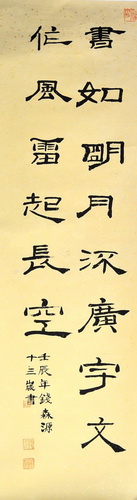 書如明月深廣宇文
作風雷起長空
壬辰年錢森源
十三歲書